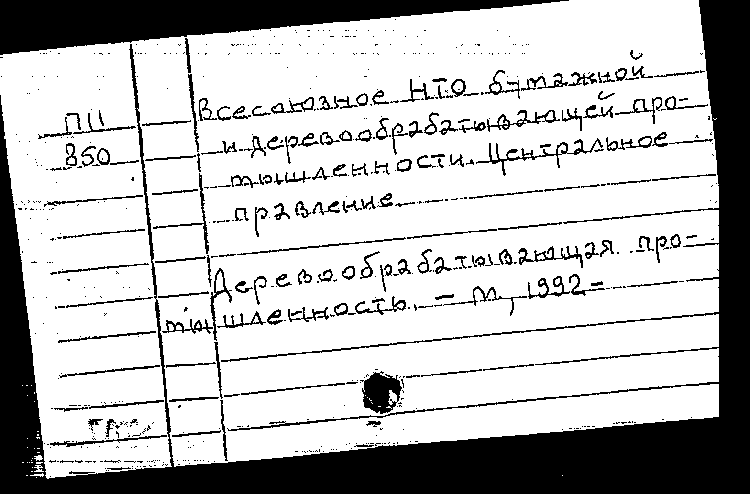 П11
850
Всесоюзное НТО бумажной
и деревообрабатывающей про-
мышленности. Центральное
правление.
Деревообрабатывающая про-
мышленность. – М, 1992-